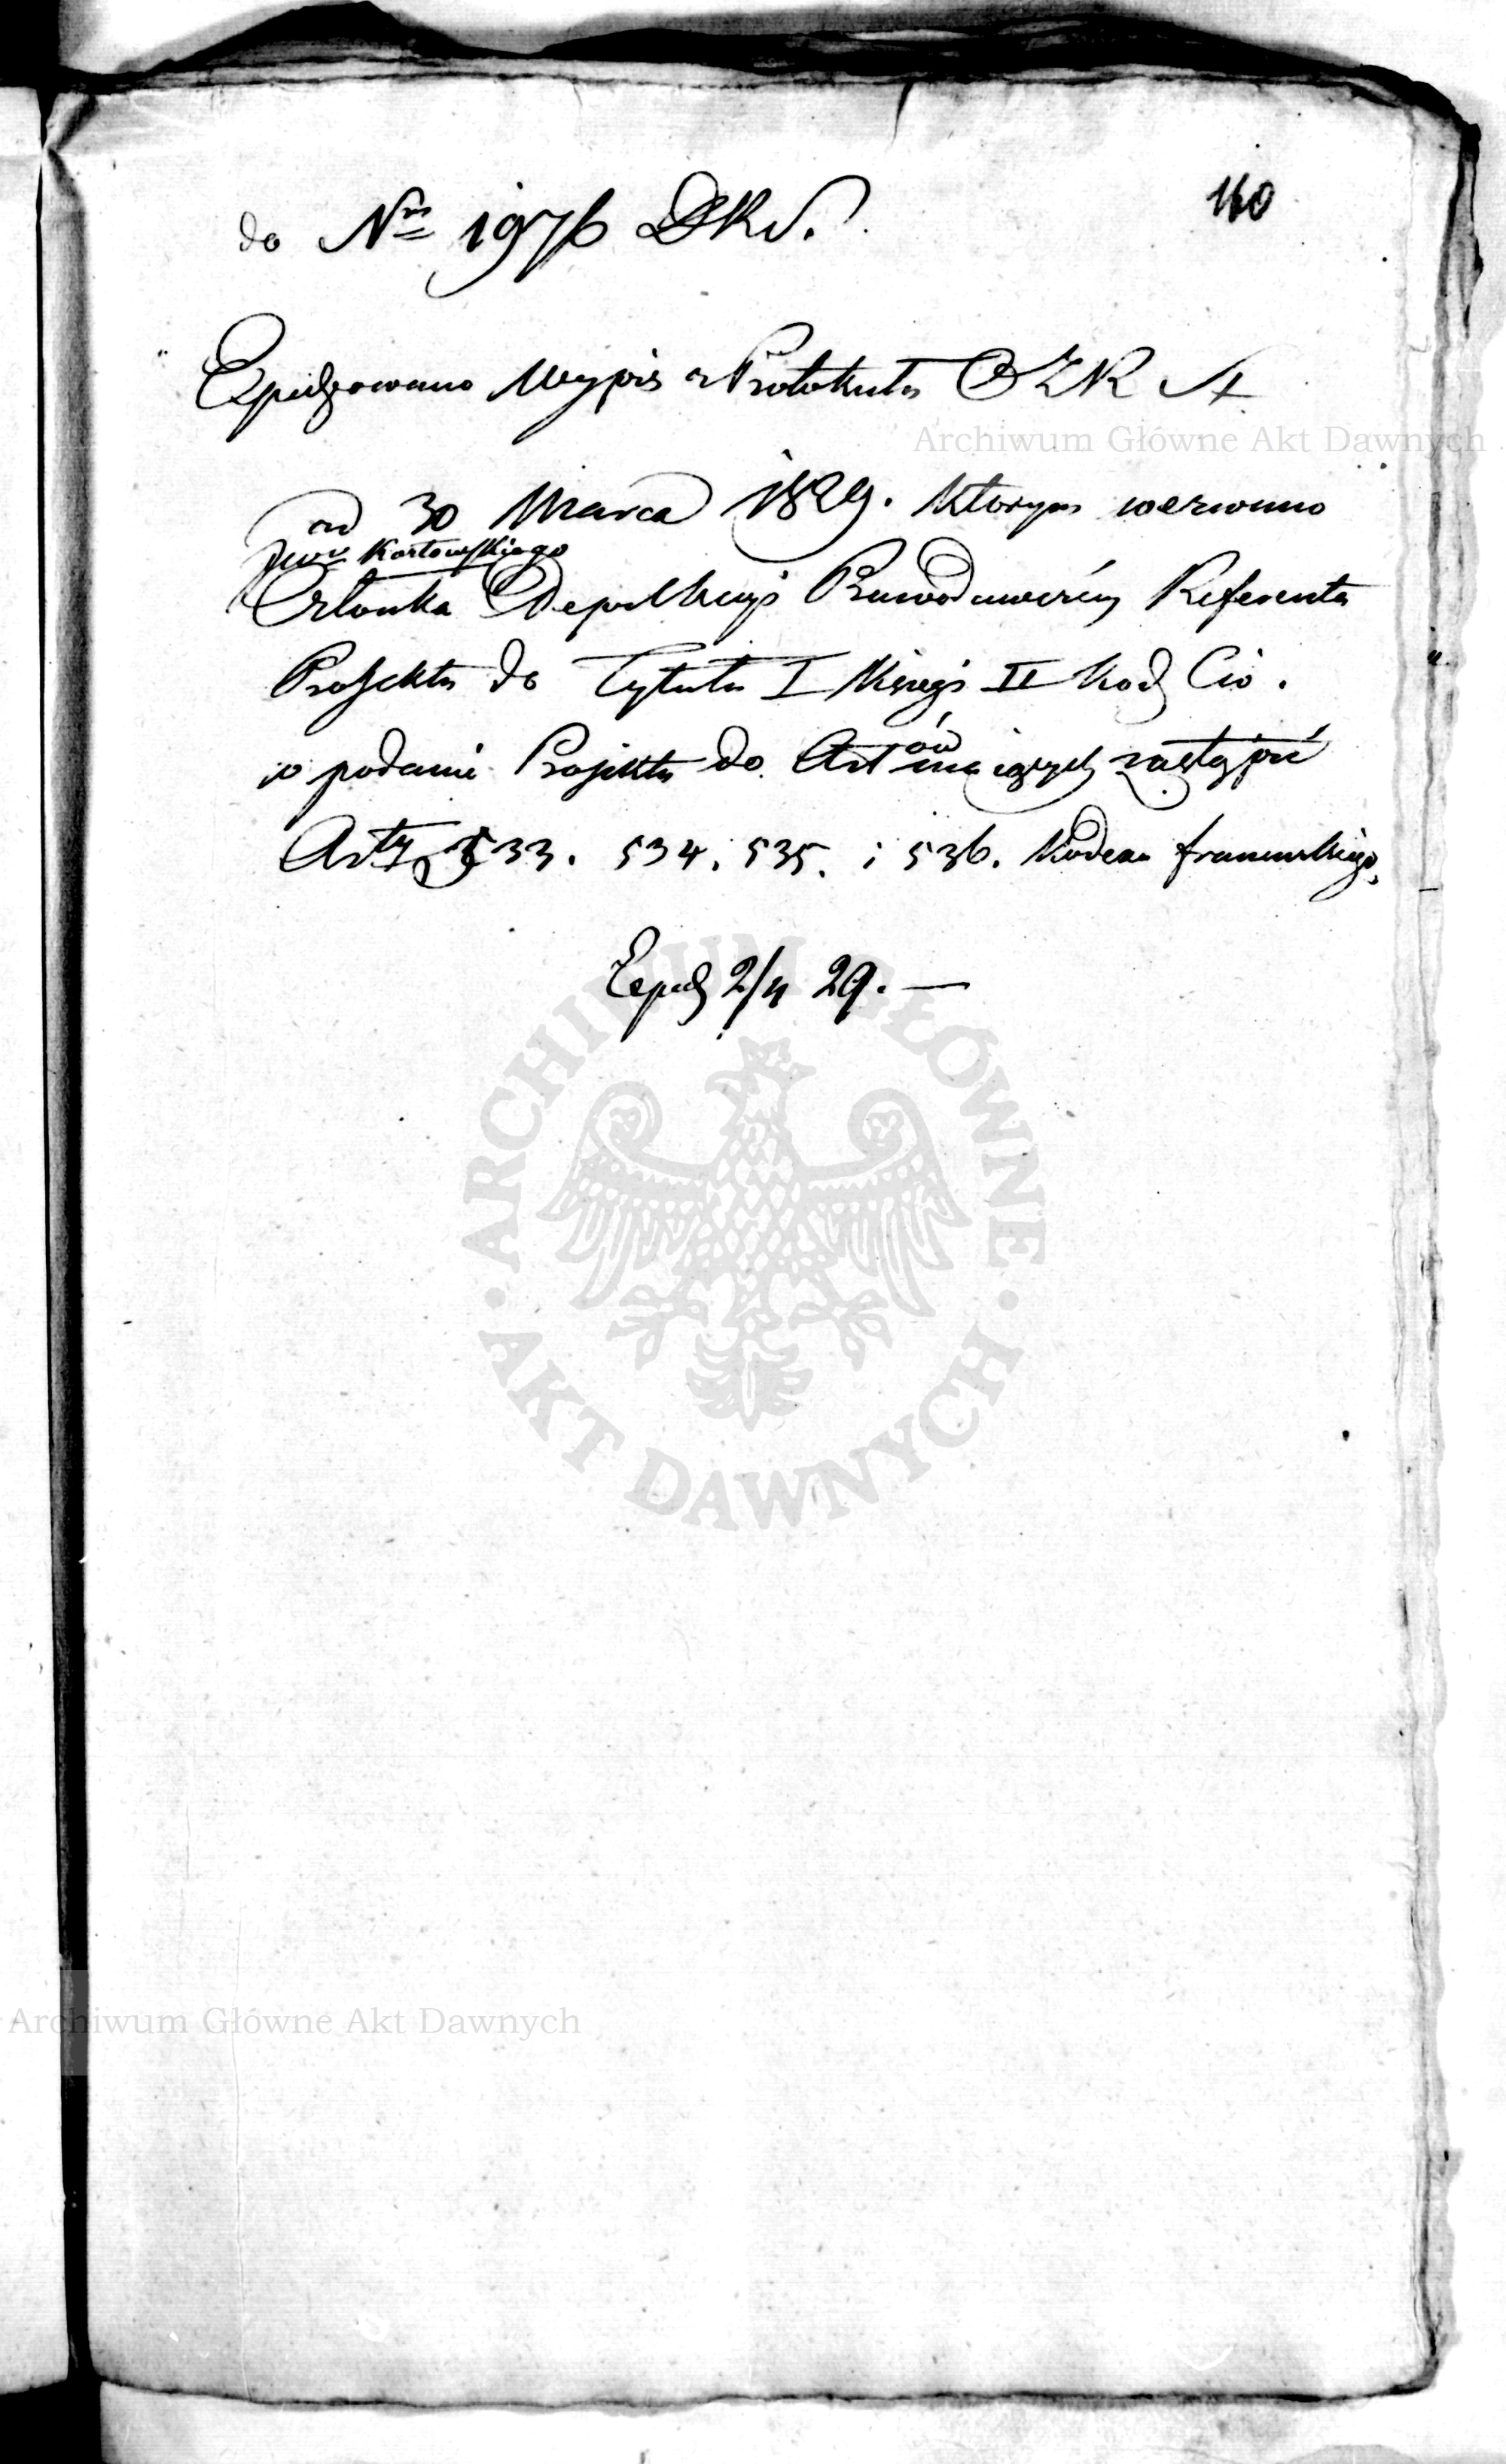 160
do Nru 1976 DKP.
Expedyowano Wypis z Protokułu
Archiwum Główne Akt Dawnych
od 30 Marca 1829. którym wezwano
Członka Deputacyi Prawodawczéy Referenta
Projektu do Tytułu I Księgi II Kod Civ.
o podanie Projektu do Artów mających zastąpić
Arty 533. 534. 535. i 536. Kodexu francuzkiego.
Exped 2/4 29. —
ARCHIWUM GŁÓWNE
AKT DAWNYCH
Archiwum Główne Akt Dawnych